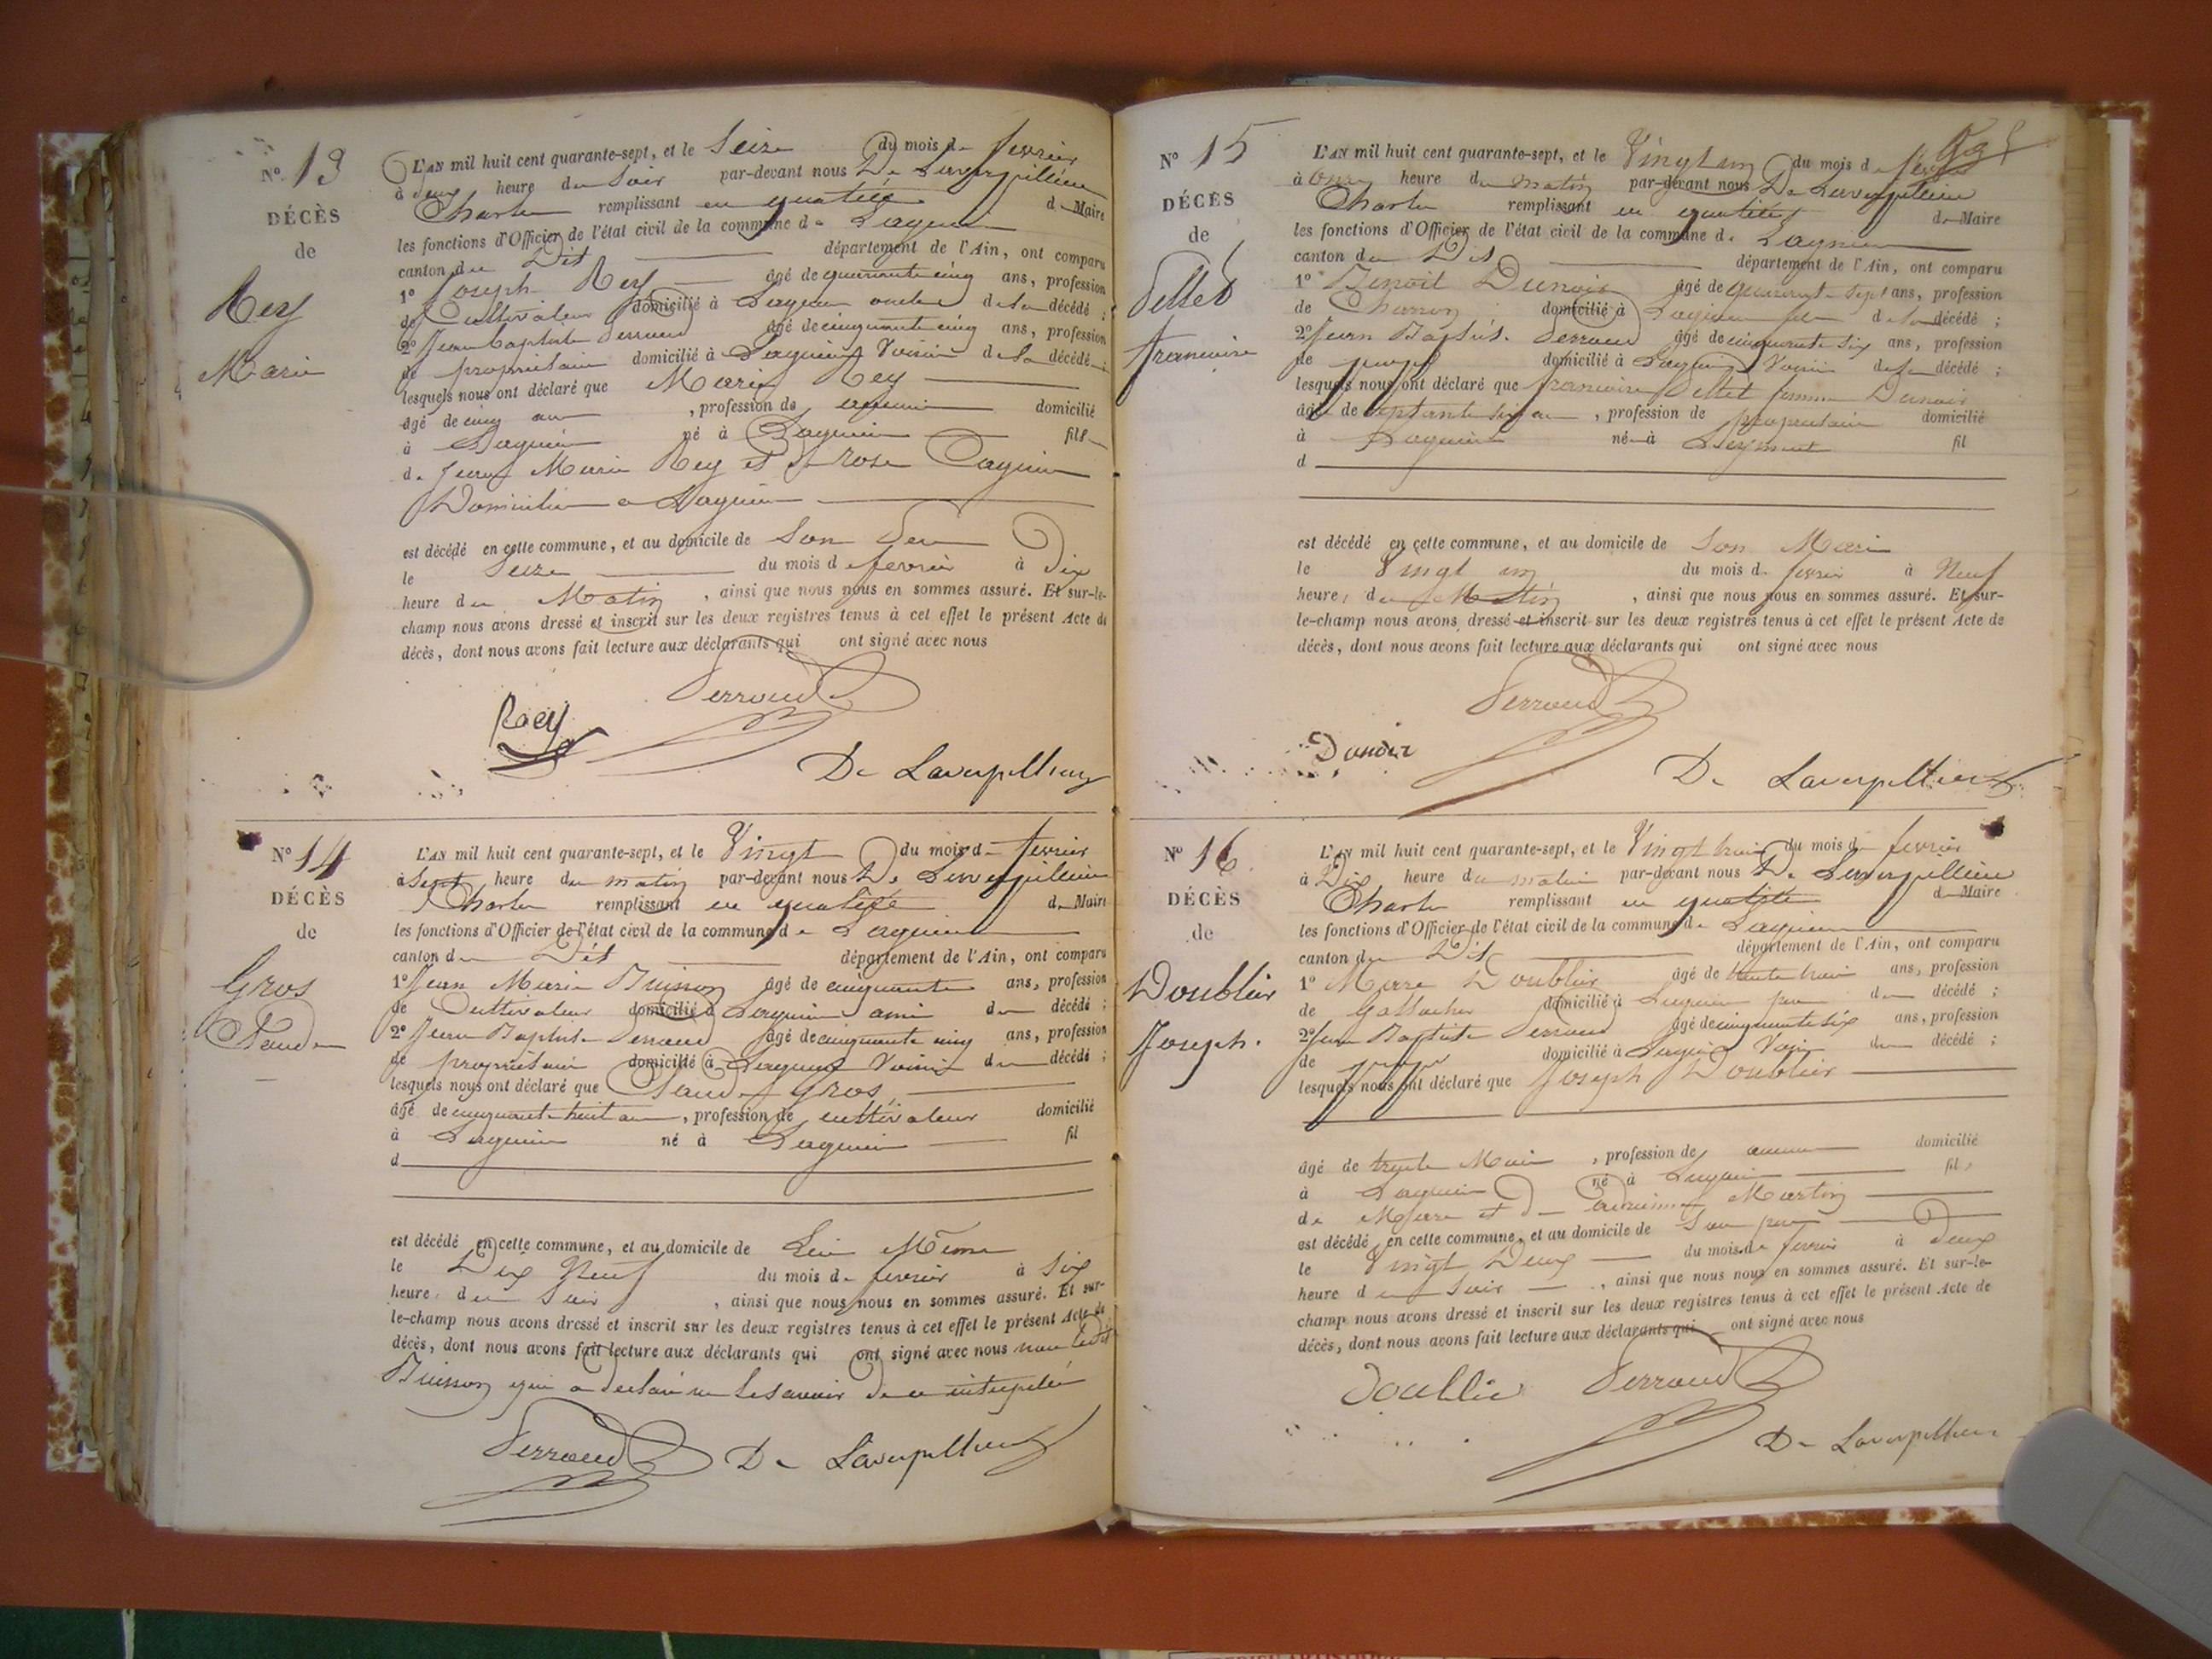 Nº 13
DÉCÈS
de
Rey
Marie
L'AN mil huit cent quarante-sept, et le Seize du mois de fevrier
à deux heure du Soir par-devant nous De Laverpillière
Charle remplissant en qualité de Maire
les fonctions d'Officier de l'état civil de la commune de Lagnieu
canton du Dit département de l'Ain, ont comparu
1º Joseph Rey âgé de quarante cinq ans, profession
de Cultivateur domicilié à Lagnieu oncle de la décédé ;
2º Jean baptiste Perroud âgé de cinquante cinq ans, profession
de propriétaire domicilié à Lagnieu Voisin de la décédé ;
lesquels nous ont déclaré que Marie Rey
âgé de cinq an , profession de domicilié
à Lagnieu né à Lagnieu fille
de Jean Marie Rey et de rose
Domicilié a Lagnieu
est décédé en cette commune, et au domicile de Son Père
le Seize du mois de fevrier à Dix
heure du Matin , ainsi que nous nous en sommes assuré. Et sur-le-
champ nous avons dressé et inscrit sur les deux registres tenus à cet effet le présent Acte de
décès, dont nous avons fait lecture aux déclarants qui ont signé avec nous
Perroud
Raey
De Laverpilliere
Nº 14
DÉCÈS
de
Gros
Claude
L'AN mil huit cent quarante-sept, et le Vingt du mois de fevrier
à Sept heure du matin par-devant nous De Laverpillière
Charle remplissant en qualité de Maire
les fonctions d'Officier de l'état civil de la commune de Lagnieu
canton du Dit département de l'Ain, ont comparu
1º Jean Marie Buisson âgé de cinquante ans, profession
de Cultivateur domicilié à Lagnieu ami du décédé ;
2º Jean Baptiste Perroud âgé de cinquante cinq ans, profession
de propriétaire domicilié à Lagnieu Voisin du décédé ;
lesquels nous ont déclaré que Claude Gros
âgé de cinquante huit an , profession de cultivateur domicilié
à Lagnieu né à Lagnieu fil
d
est décédé en cette commune, et au domicile de Lui Même
le Dix Neuf du mois de fevrier à Six
heure, du Soir , ainsi que nous nous en sommes assuré. Et sur-
le-champ nous avons dressé et inscrit sur les deux registres tenus à cet effet le présent Acte de
décès, dont nous avons fait lecture aux déclarants qui ont signé avec nous non ledit
Buisson qui a declaré ne le Savoir de ce interpellé
Perroud De Laverpilliere
Nº 15
DÉCÈS
de
Pellet
francoise
L'AN mil huit cent quarante-sept, et le Vingt un du mois de
à Onze heure du matin par-devant nous De Laverpillière
Charle remplissant en qualité de Maire
les fonctions d'Officier de l'état civil de la commune de Lagnieu
canton du Dit département de l'Ain, ont comparu
1º Benoit Dunoir âgé de quarante Sept ans, profession
de Charron domicilié à Lagnieu fils de la décédé ;
2º Jean Baptiste Perroud âgé de cinquante Six ans, profession
de domicilié à Lagnieu Voisin de la décédé ;
lesquels nous ont déclaré que francoise Pellet femme Dunoir
âgé de Septante Six an , profession de propriétaire domicilié
à Lagnieu né à Leyment fil
d
est décédé en cette commune, et au domicile de Son Mari
le Vingt un du mois de fevrier à Neuf
heure, du Matin , ainsi que nous nous en sommes assuré. Et sur-
le-champ nous avons dressé et inscrit sur les deux registres tenus à cet effet le présent Acte de
décès, dont nous avons fait lecture aux déclarants qui ont signé avec nous
Perroud
Dunoir
De Laverpilliere
Nº 16
DÉCÈS
de
Doublier
Joseph.
L'AN mil huit cent quarante-sept, et le Vingt trois du mois de fevrier
à Dix heure du matin par-devant nous De Laverpillière
Charle remplissant en qualité de Maire
les fonctions d'Officier de l'état civil de la commune de Lagnieu
canton du Dit département de l'Ain, ont comparu
1º Doublier âgé de trente trois ans, profession
de domicilié à Lagnieu père du décédé ;
2º Jean Baptiste Perroud âgé de cinquante Six ans, profession
de domicilié à Lagnieu Voisin du décédé ;
lesquels nous ont déclaré que Joseph Doublier
âgé de Mois , profession de domicilié
à Lagnieu né à Lagnieu fils
de et de Martin
est décédé en cette commune, et au domicile de Son père
le Vingt Deux du mois de fevrier à Deux
heure du Soir , ainsi que nous nous en sommes assuré. Et sur-le-
champ nous avons dressé et inscrit sur les deux registres tenus à cet effet le présent Acte de
décès, dont nous avons fait lecture aux déclarants qui ont signé avec nous
Doublie Perroud
De Laverpilliere